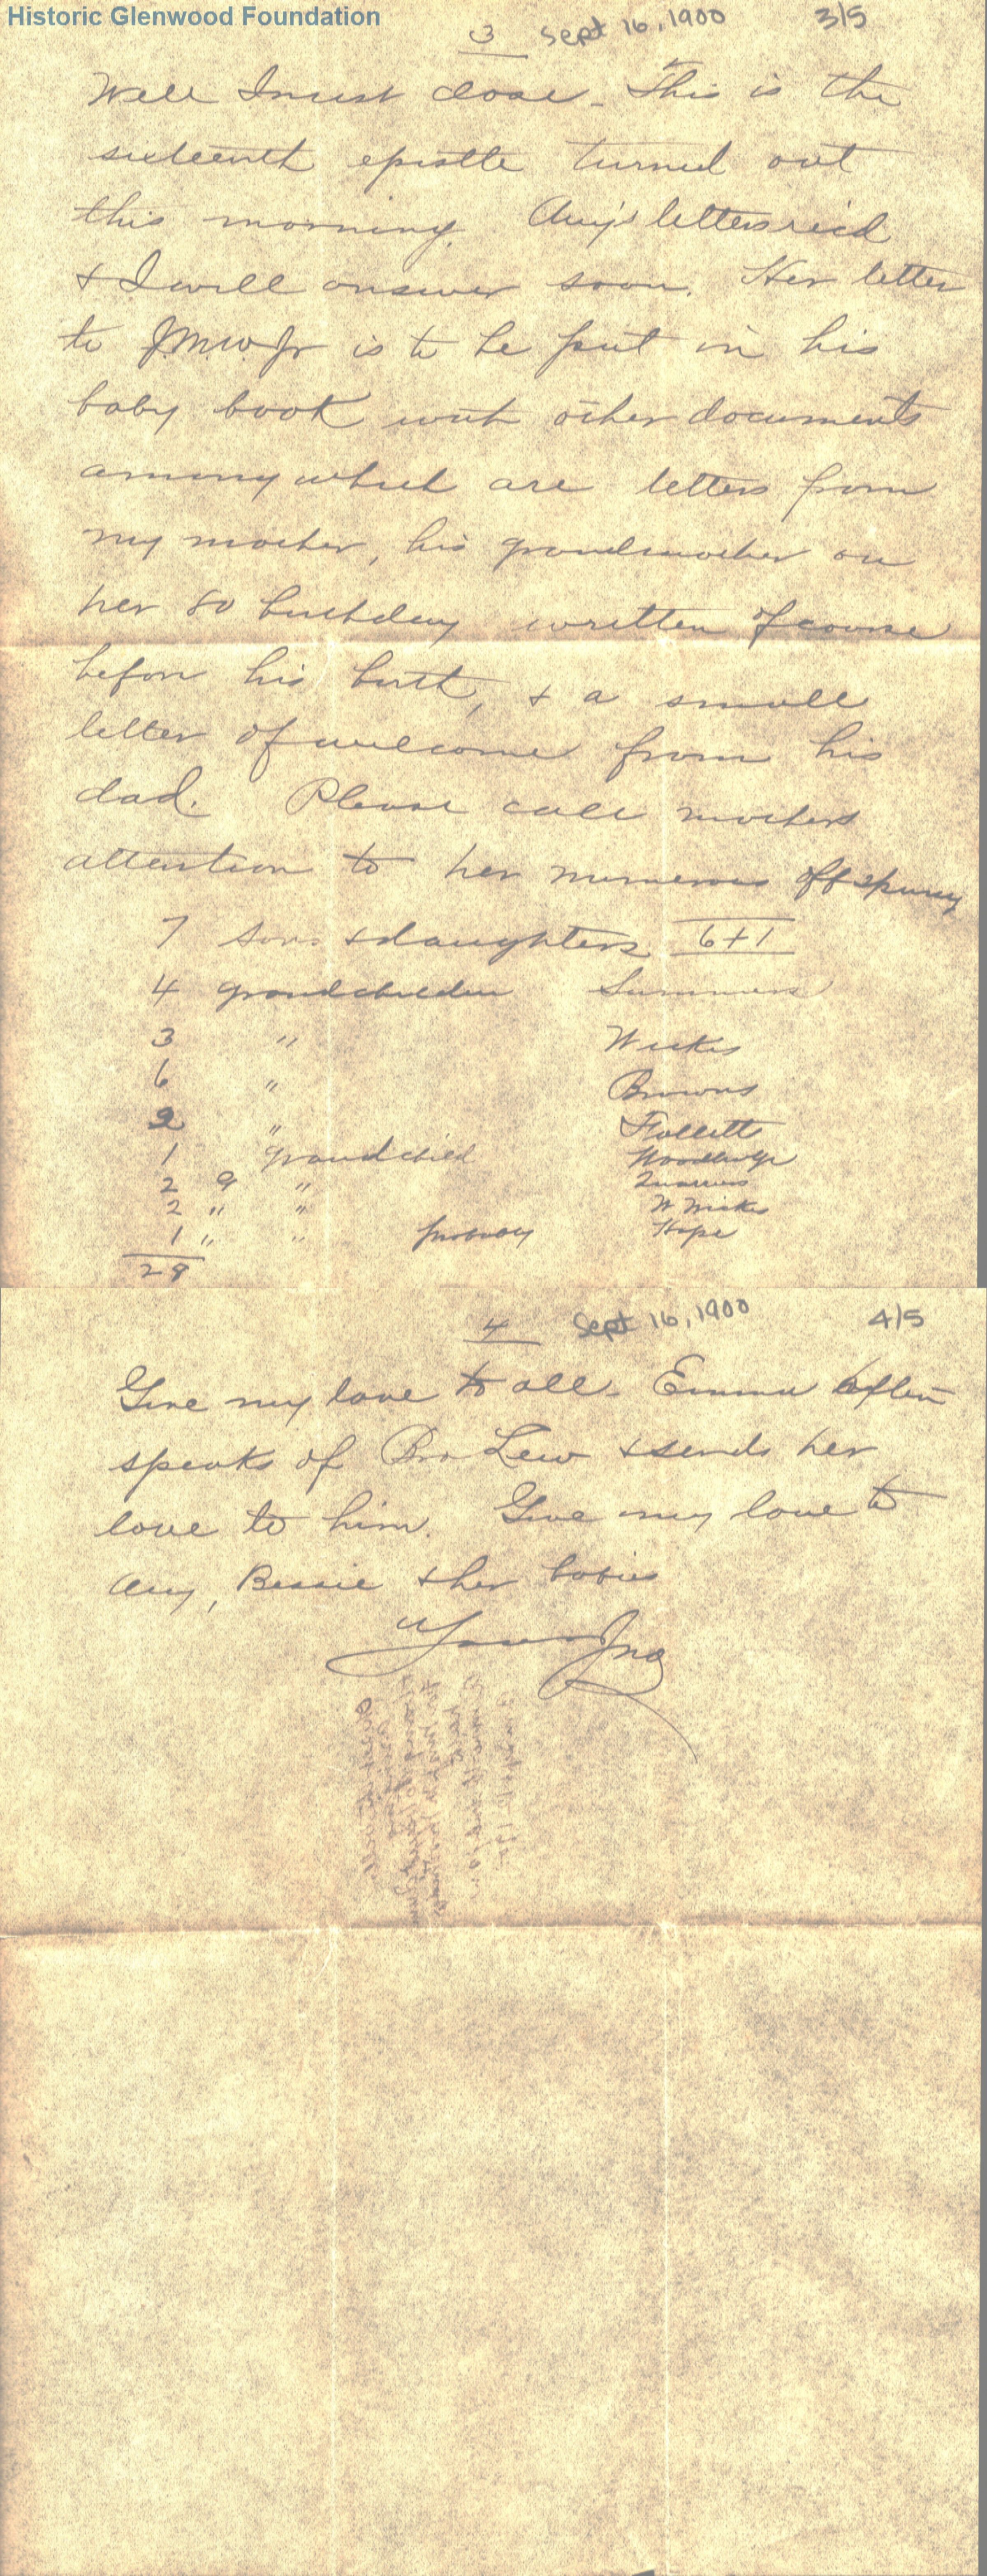 Historic Glenwood Foundation
3 Sept 16, 1900 3/5
Well I must close - This is the
sixteenth epistle turned out
this morning. Amy's letters rec'd
& I will answer soon. Her letter
to J.M.W. Jr is to be put in his
baby book with other documents
among which are letters from
my mother, his grandmother on
her 80 birthday written of course
before his birth, & a small
letter of welcome from his
dad. Please call mothers
attention to her numerous offspring
7 sons & daughters 6+1
4 grandchildren Summers
3 "
6 " Browns
2 " Follett
1 grandchild
2 g "
2 " "
1 " " probably Hope
28
4 Sept 16, 1900 4/5
Give my love to all. Emma often
speaks of Bro Lew & sends her
love to him. Give my love to
Amy, Bessie & her babies
Yours Jno